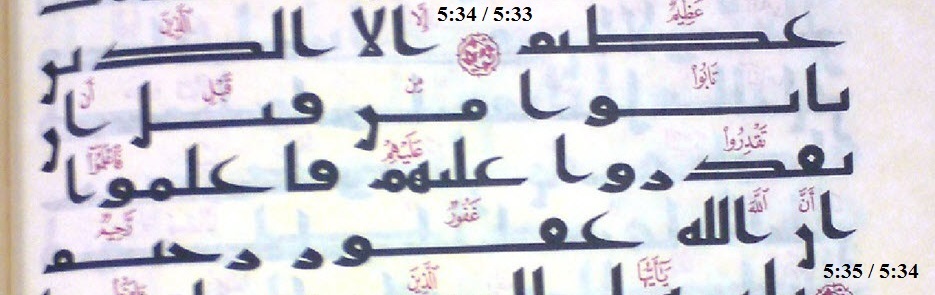 5:34 / 5:33
عَظِيمٌ إِلَّا الَّذِينَ
عظيم الا الذين
تَابُوا مِن قَبْلِ أَن
تابوا من قبل ان
تَقْدِرُوا عَلَيْهِمْ فَاعْلَمُوا
تقدروا عليهم فاعلموا
أَنَّ ٱللَّه غَفُورٌ رَّحِيمٌ
ان الله غفور رحيم
5:35 / 5:34
يَٰأَيُّهَا الَّذِينَ